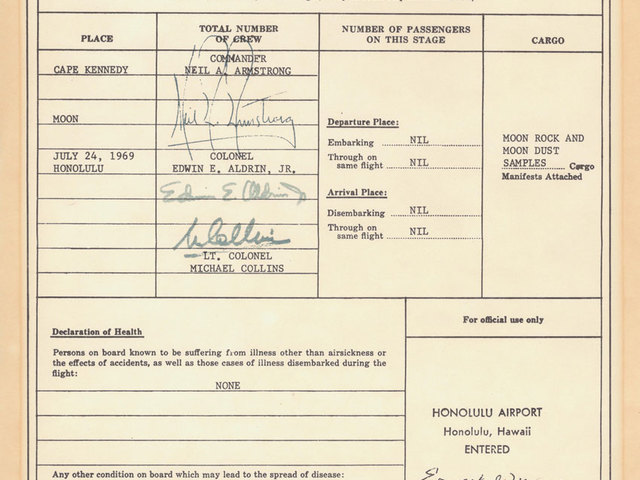 PLACE
TOTAL NUMBER
OF CREW
NUMBER OF PASSENGERS
ON THIS STAGE
CARGO
CAPE KENNEDY
COMMANDER
NEIL A. ARMSTRONG
Neil A. Armstrong
MOON
Departure Place:
Embarking NIL
Through on
same flight NIL
MOON ROCK AND
MOON DUST
SAMPLES Cargo
Manifests Attached
JULY 24, 1969
HONOLULU
COLONEL
EDWIN E. ALDRIN, JR.
Edwin E Aldrin Jr
Arrival Place:
Disembarking NIL
Through on
same flight NIL
M Collins
LT. COLONEL
MICHAEL COLLINS
Declaration of Health
Persons on board known to be suffering from illness other than airsickness or
the effects of accidents, as well as those cases of illness disembarked during the
flight:
NONE
Any other condition on board which may lead to the spread of disease:
For official use only
HONOLULU AIRPORT
Honolulu, Hawaii
ENTERED